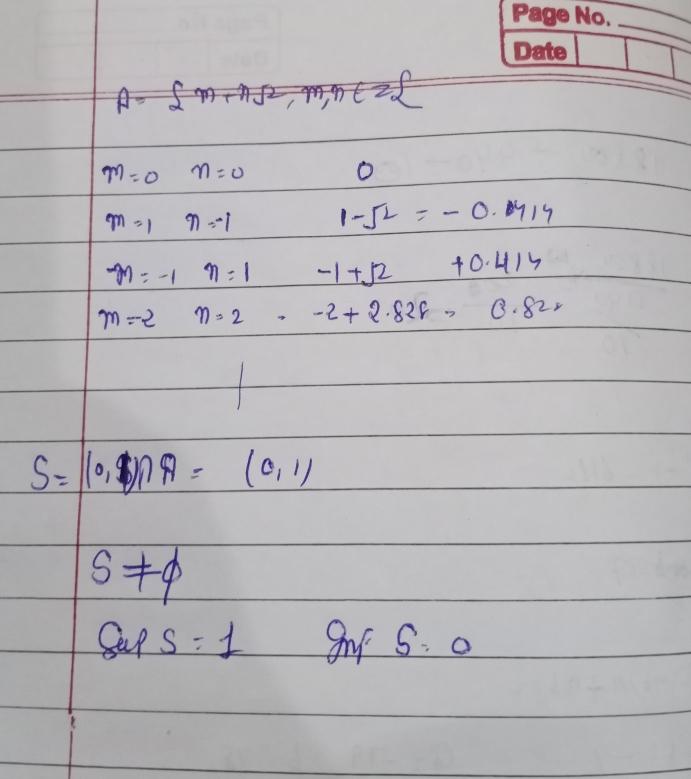 Page No.
Date
A = { m + n√2, m, n ∈ Z }
m = 0 n = 0 0
m = 1 n = -1 1 - √2 = - 0.414
m = -1 n = 1 -1 + √2 +0.414
m = -2 n = 2 - -2 + 2.828 = 0.828
S = (0, 1) ∩ A = (0, 1)
S ≠ ϕ
Sup S = 1 Inf S = 0